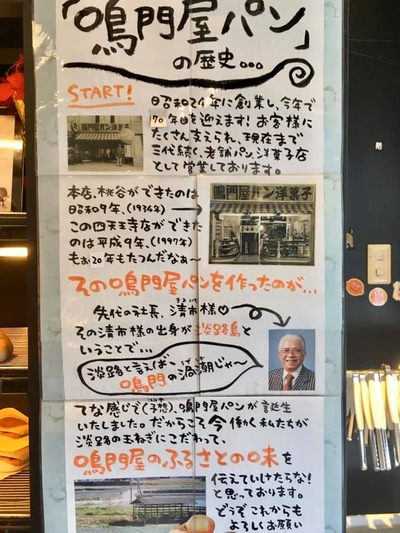 「鳴門屋パン」
の歴史。。。
START!
昭和24年に創業し、今年で
70年目を迎えます!お客様に
たくさん支えられ、現在まで
三代続く、老舗パン、洋菓子店
として営業しております。
本店、桃谷ができたのは
昭和9年、(1934年)
この四天王寺店ができた
のは平成9年、(1997年)
もぉ20年もたつんだなぁ〜
鳴門屋パン洋菓子
その鳴門屋パンを作ったのが...
先代の社長、清市様♡
その清市様の出身が淡路島と
いうことで...
淡路と言えば、
鳴門の渦潮じゃー
てな感じで(予想)、鳴門屋パンが誕生
いたしました。だからこそ今働く私たちが
淡路の玉ねぎにこだわって、
鳴門屋のふるさとの味を
伝えていけたらな!
と思っております。
どうぞこれからも
よろしくお願い